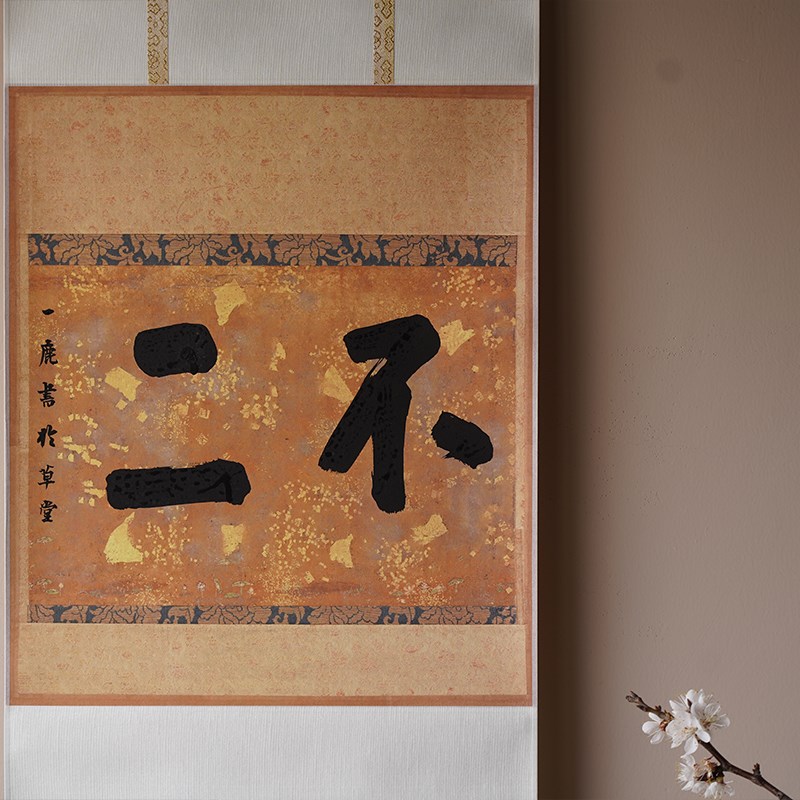 不二
一鹿書於草堂